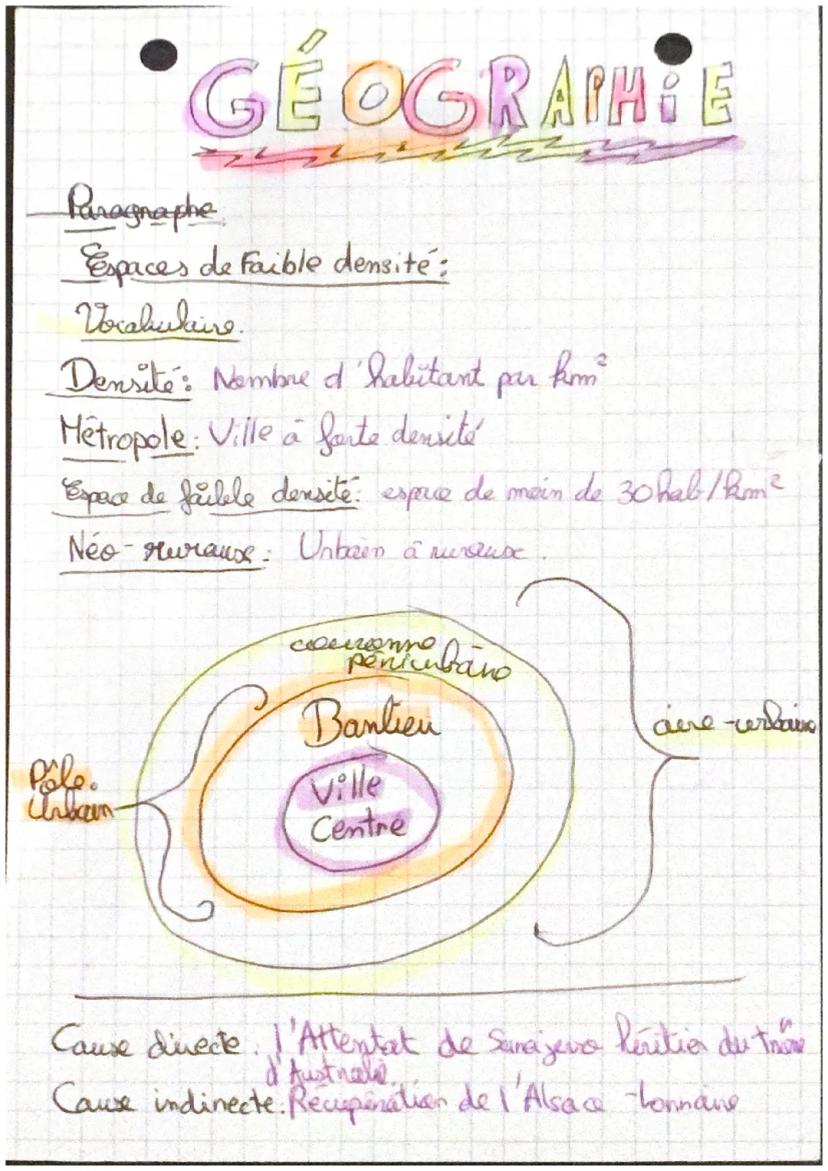 GÉOGRAPHiE
Paragraphe.
Espaces de Faible densité:
Vocabulaire.
Densité: Nombre d'habitant par km²
Métropole: Ville à forte densité
Espace de faible densité: espace de moin de 30 hab/km²
Néo-ruraux: Urbain à ruraux.
couronne
périurbaine
Banlieu
aire-urbaine
Pôle.
Urbain
Ville
Centre
Cause directe: l'Attentat de Sarajevo héritier du trône
d'Australie
Cause indirecte: Récupération de l'Alsace-Lorraine